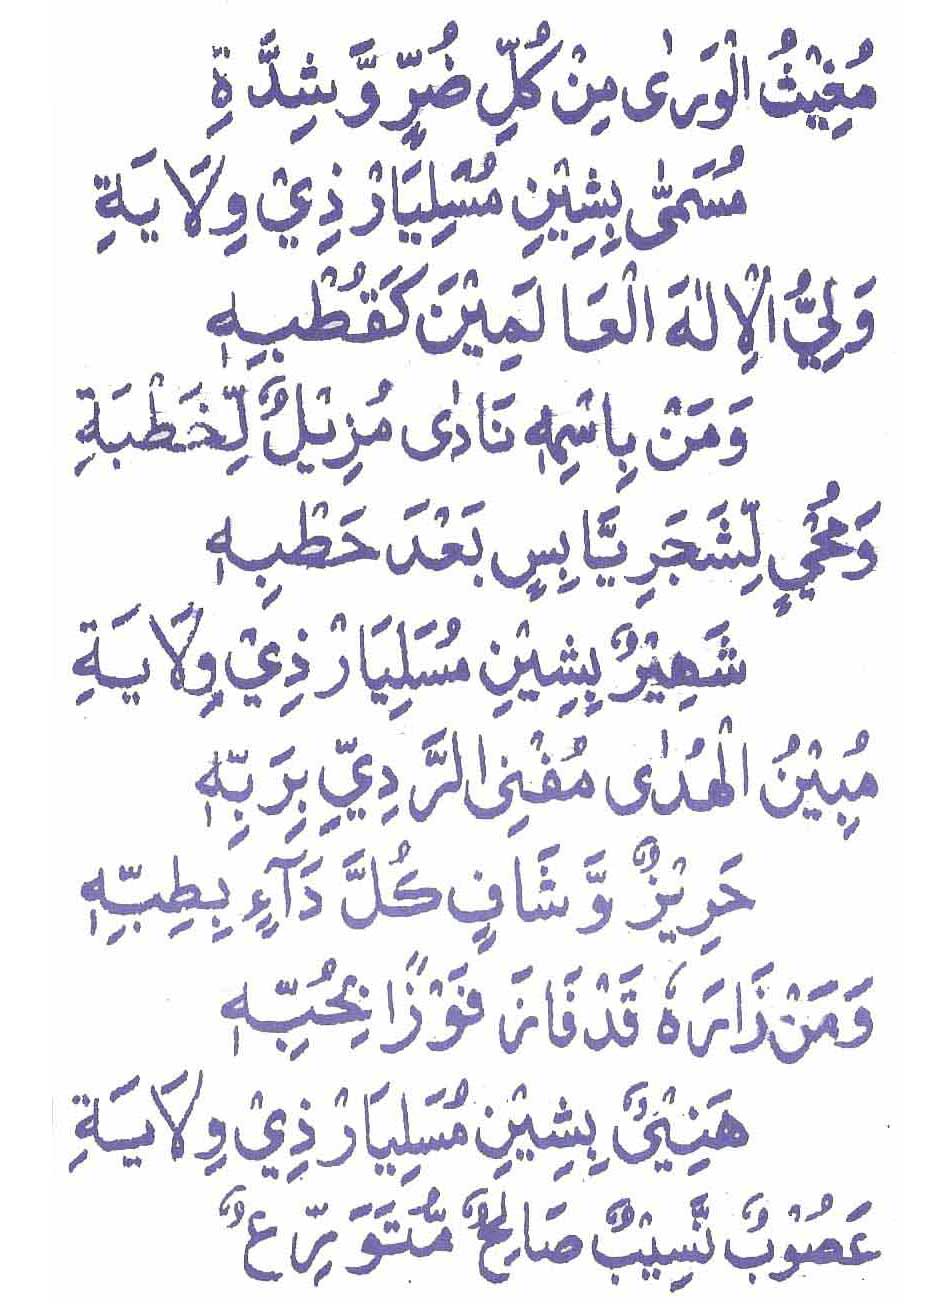 مُغِيْثُ الْوَرٰى مِنْ كُلِّ ضُرٍّ وَّشِدَّةِ
مُسَمّٰى بِشِيْنِ مُسْلِيَارْ ذِيْ وِلَايَةِ
وَلِيُّ الْاِلٰهَ الْعَالَمِيْنَ كَقُطْبِهٖ
وَمَنْ بِاسْمِهٖ نَادٰى مُزِيْلٌ لِّخَطْبَةِ
وَمُحْيٍ لِّشَجَرِ يَّابِسٍ بَعْدَ حَطْبِهٖ
شَهِيْرٌ بِشِيْنِ مُسَلِيَارْ ذِيْ وِلَايَةِ
مُبِيْنُ الْهُدٰى مُفْنِى الرَّدِيِّ بِرَبِّهٖ
حَرِيْزٌ وَّشَافٍ كُلَّ دَآءٍ بِطِبِّهٖ
وَمَنْ زَارَهٗ قَدْ فَازَ فَوْزًا بِحُبِّهٖ
هَنِيْئٌ بِشِيْنِ مُسَلِيَارْ ذِيْ وِلَايَةِ
عَصُوْبٌ نَّسِيْبٌ صَالِحٌ مُّتَوَرِّعٌ